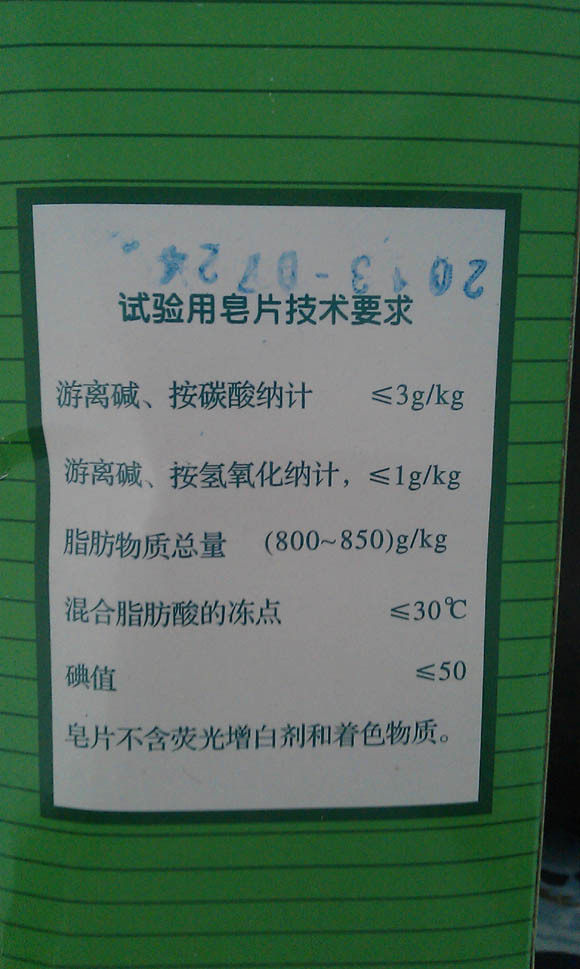 2013-0724
试验用皂片技术要求
游离碱、按碳酸纳计 ≤3g/kg
游离碱、按氢氧化纳计，≤1g/kg
脂肪物质总量 (800~850)g/kg
混合脂肪酸的冻点 ≤30℃
碘值 ≤50
皂片不含荧光增白剂和着色物质。